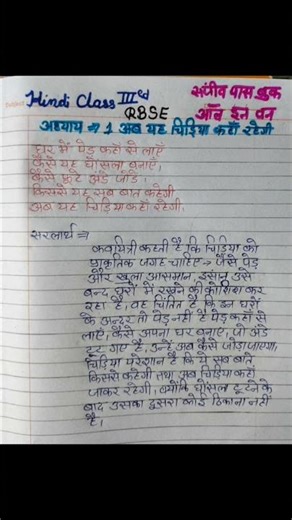 Hindi Class III rd
RBSE
संजीव पास बुक
ऑल इन वन
अध्याय ⇒ 1 अब यह चिड़िया कहाँ रहेगी
घर में पेड़ कहाँ से लाएँ
कैसे यह घोंसला बनाएँ,
कैसे फूटे अंडे जोड़ें,
किससे यह सब बात कहेगी
अब यह चिड़िया कहाँ रहेगी,
सरलार्थ ⇒
कवयित्री कहती है कि चिड़िया को
प्राकृतिक जगह चाहिए → जैसे पेड़
और खुला आसमान, इंसान उसे
बन्द घरों में रखने की कोशिश कर
रहा है, वह चिंतित है कि इन घरों
के अन्दर तो पेड़ नहीं है पेड़ कहाँ से
लाएँ, कैसे अपना घर बनाए, जो अंडे
टूट गए है, उन्हें अब कैसे जोड़ा जाएगा,
चिड़िया परेशान है कि ये सब बातें
किससे कहेगी तथा अब चिड़िया कहाँ
जाकर रहेगी, क्योंकि घोंसला टूटने के
बाद उसका दुसरा कोई ठिकाना नहीं
है।